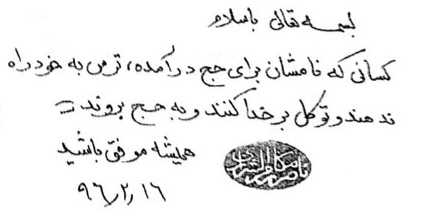 بسمه تعالی باسلام
کسانی که نامشان برای حج درآمده، ترس به خود راه
ندهند و توکل بر خدا کنند و به حج بروند
همیشه موفق باشید
ناصر مکارم الشیرازی
۹۶٫۲٫۱۶